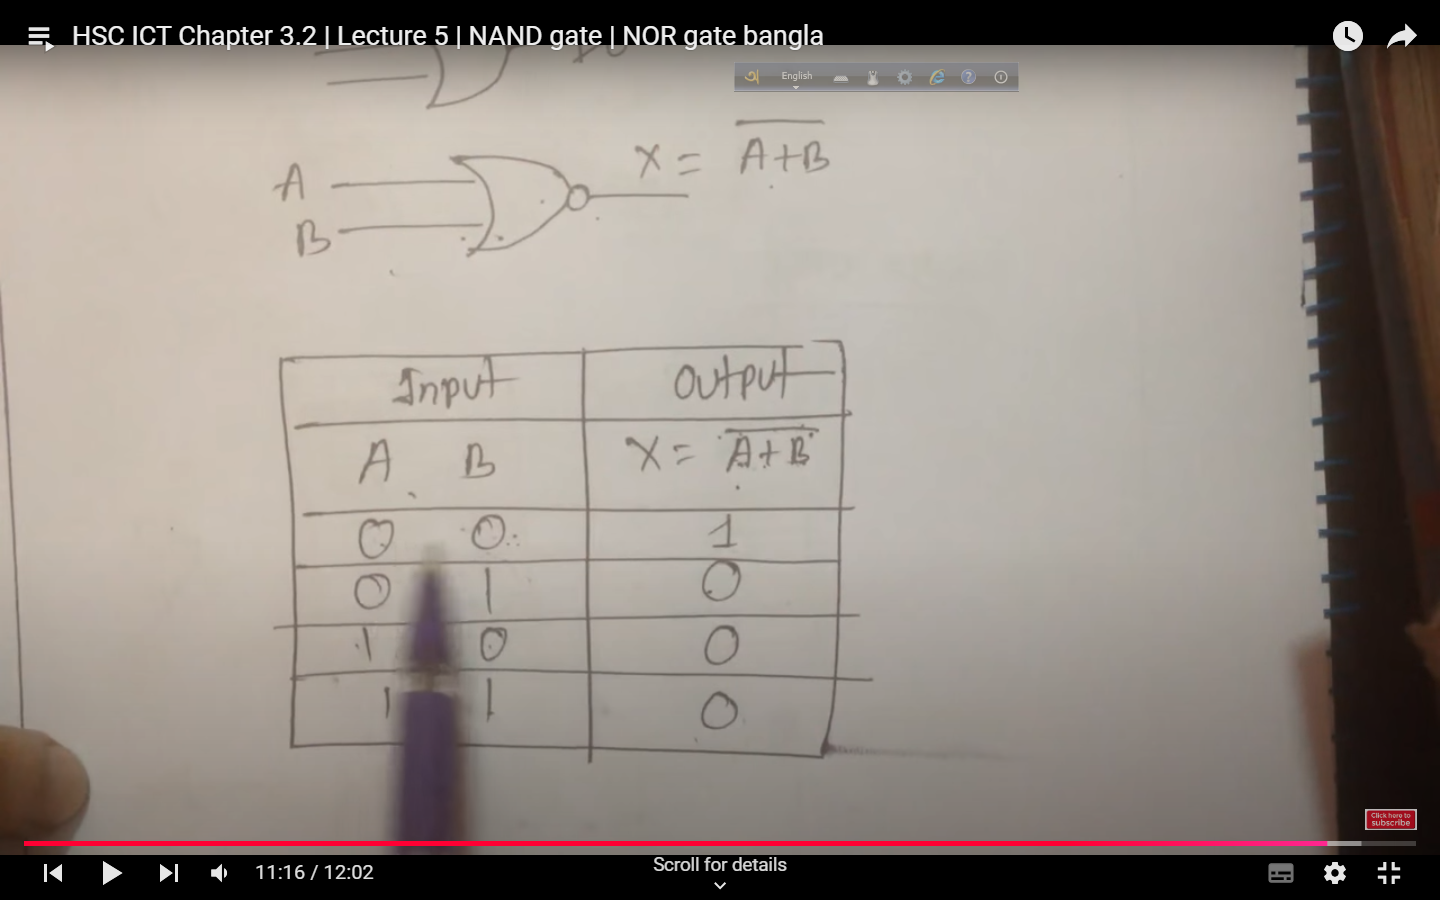 HSC ICT Chapter 3.2 | Lecture 5 | NAND gate | NOR gate bangla
অ English
A
B
X = \overline{A+B}
Input Output
A B X = \overline{A+B}
0 0 1
0 1 0
1 0 0
1 1 0
Click here to
subscribe
11:16 / 12:02
Scroll for details